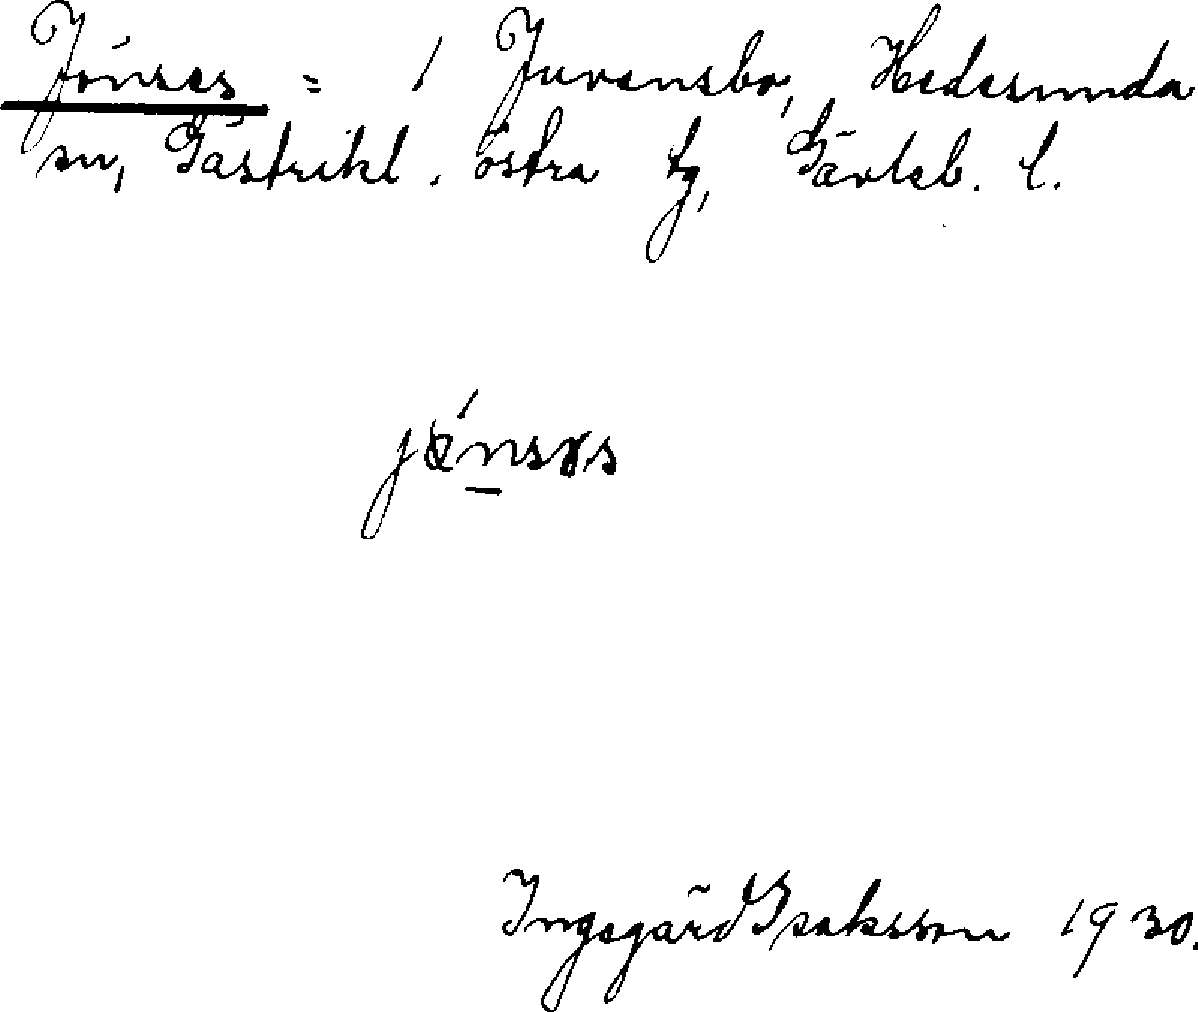 Jónses = / Juvansbo, Hedesunda
sn, Gästrikl. östra tg, Gävleb. l.
jónsəs
Ingegärd Isaksson 1930.